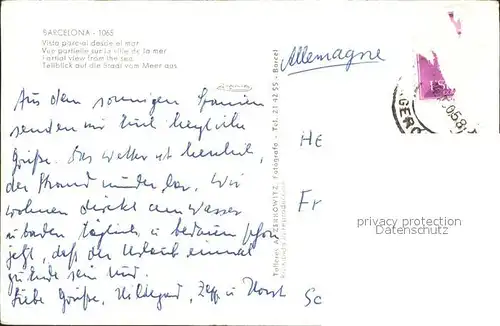 BARCELONA - 1065
Vista parcial desde el mar
Vue partielle sur la ville de la mer
Partial view from the sea
Teilblick auf die Stadt vom Meer aus
Allemagne
Aus dem sonnigen Spanien
senden wir Euch herzliche
Grüße. Das Wetter ist herrlich,
der Strand wunderbar. Wir
wohnen direkt am Wasser
u. baden täglich u. bedauern schon
jetzt, daß der Urlaub einmal
zu Ende sein wird.
Liebe Grüße, Hildegard, Zepp u. Horst
Talleres A. ZERKOWITZ, Fotógrafo - Tel. 21 42 55 - Barcel
HE
Fr
Sc
privacy protection
Datenschutz
GERO